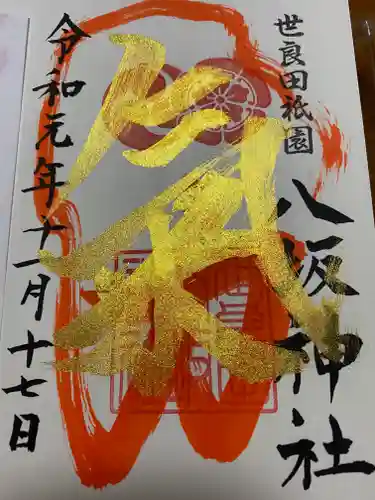 世良田祇園
八坂神社
令和元年十一月十七日